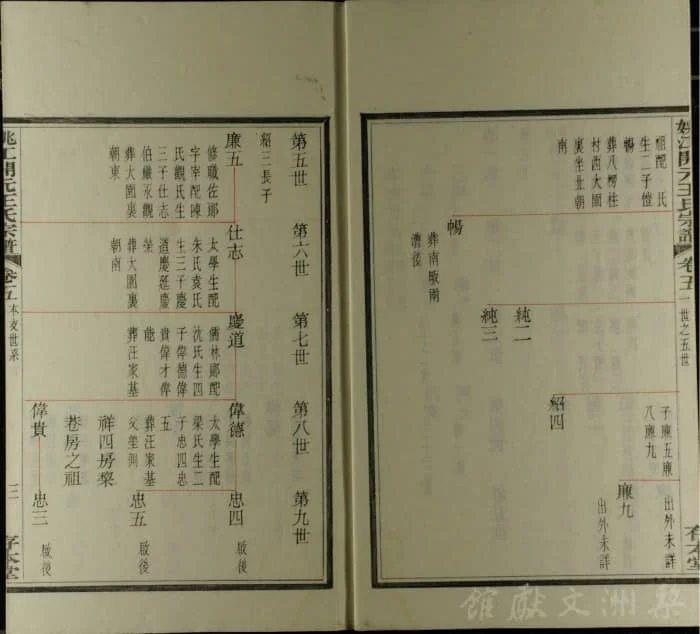 姚江開元王氏宗譜
卷五
一世之五世
存本堂
祖配 氏
生二子愷
暢
葬八楞柱
村西大園
裏坐北朝
南
暢
葬南畈雨
漕後
純二
純三
紹四
子廉五廉
八廉九
出外未詳
廉九
出外未詳
第五世
第六世
第七世
第八世
第九世
紹三長子
廉五
修職佐郎
字宰配陳
氏觀氏生
三子仕志
伯繼永觀
葬大園裏
朝東
仕志
太學生配
朱氏袁氏
生三子慶
道慶延慶
榮
葬大園裏
朝南
慶道
儒林郎配
沈氏生四
子偉德偉
貴偉才偉
能
葬汪家基
偉德
太學生配
梁氏生二
子忠四忠
五
葬汪家基
父塋側
祥四房槃
巷房之祖
忠四
啟後
忠五
啟後
偉貴
忠三
啟後
姚江開元王氏宗譜
卷五
本支世系
三
存本堂
梨洲文獻館